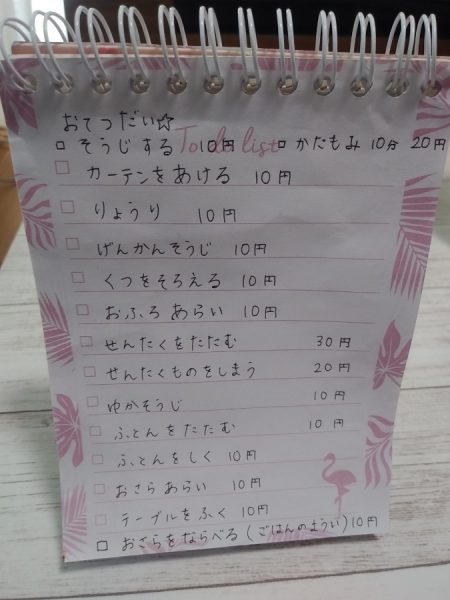 おてつだい☆
To do list
そうじする 10円 かたもみ 10分 20円
カーテンをあける 10円
りょうり 10円
げんかんそうじ 10円
くつをそろえる 10円
おふろあらい 10円
せんたくをたたむ 30円
せんたくものをしまう 20円
ゆかそうじ 10円
ふとんをたたむ 10円
ふとんをしく 10円
おさらあらい 10円
テーブルをふく 10円
おさらをならべる(ごはんのようい)10円